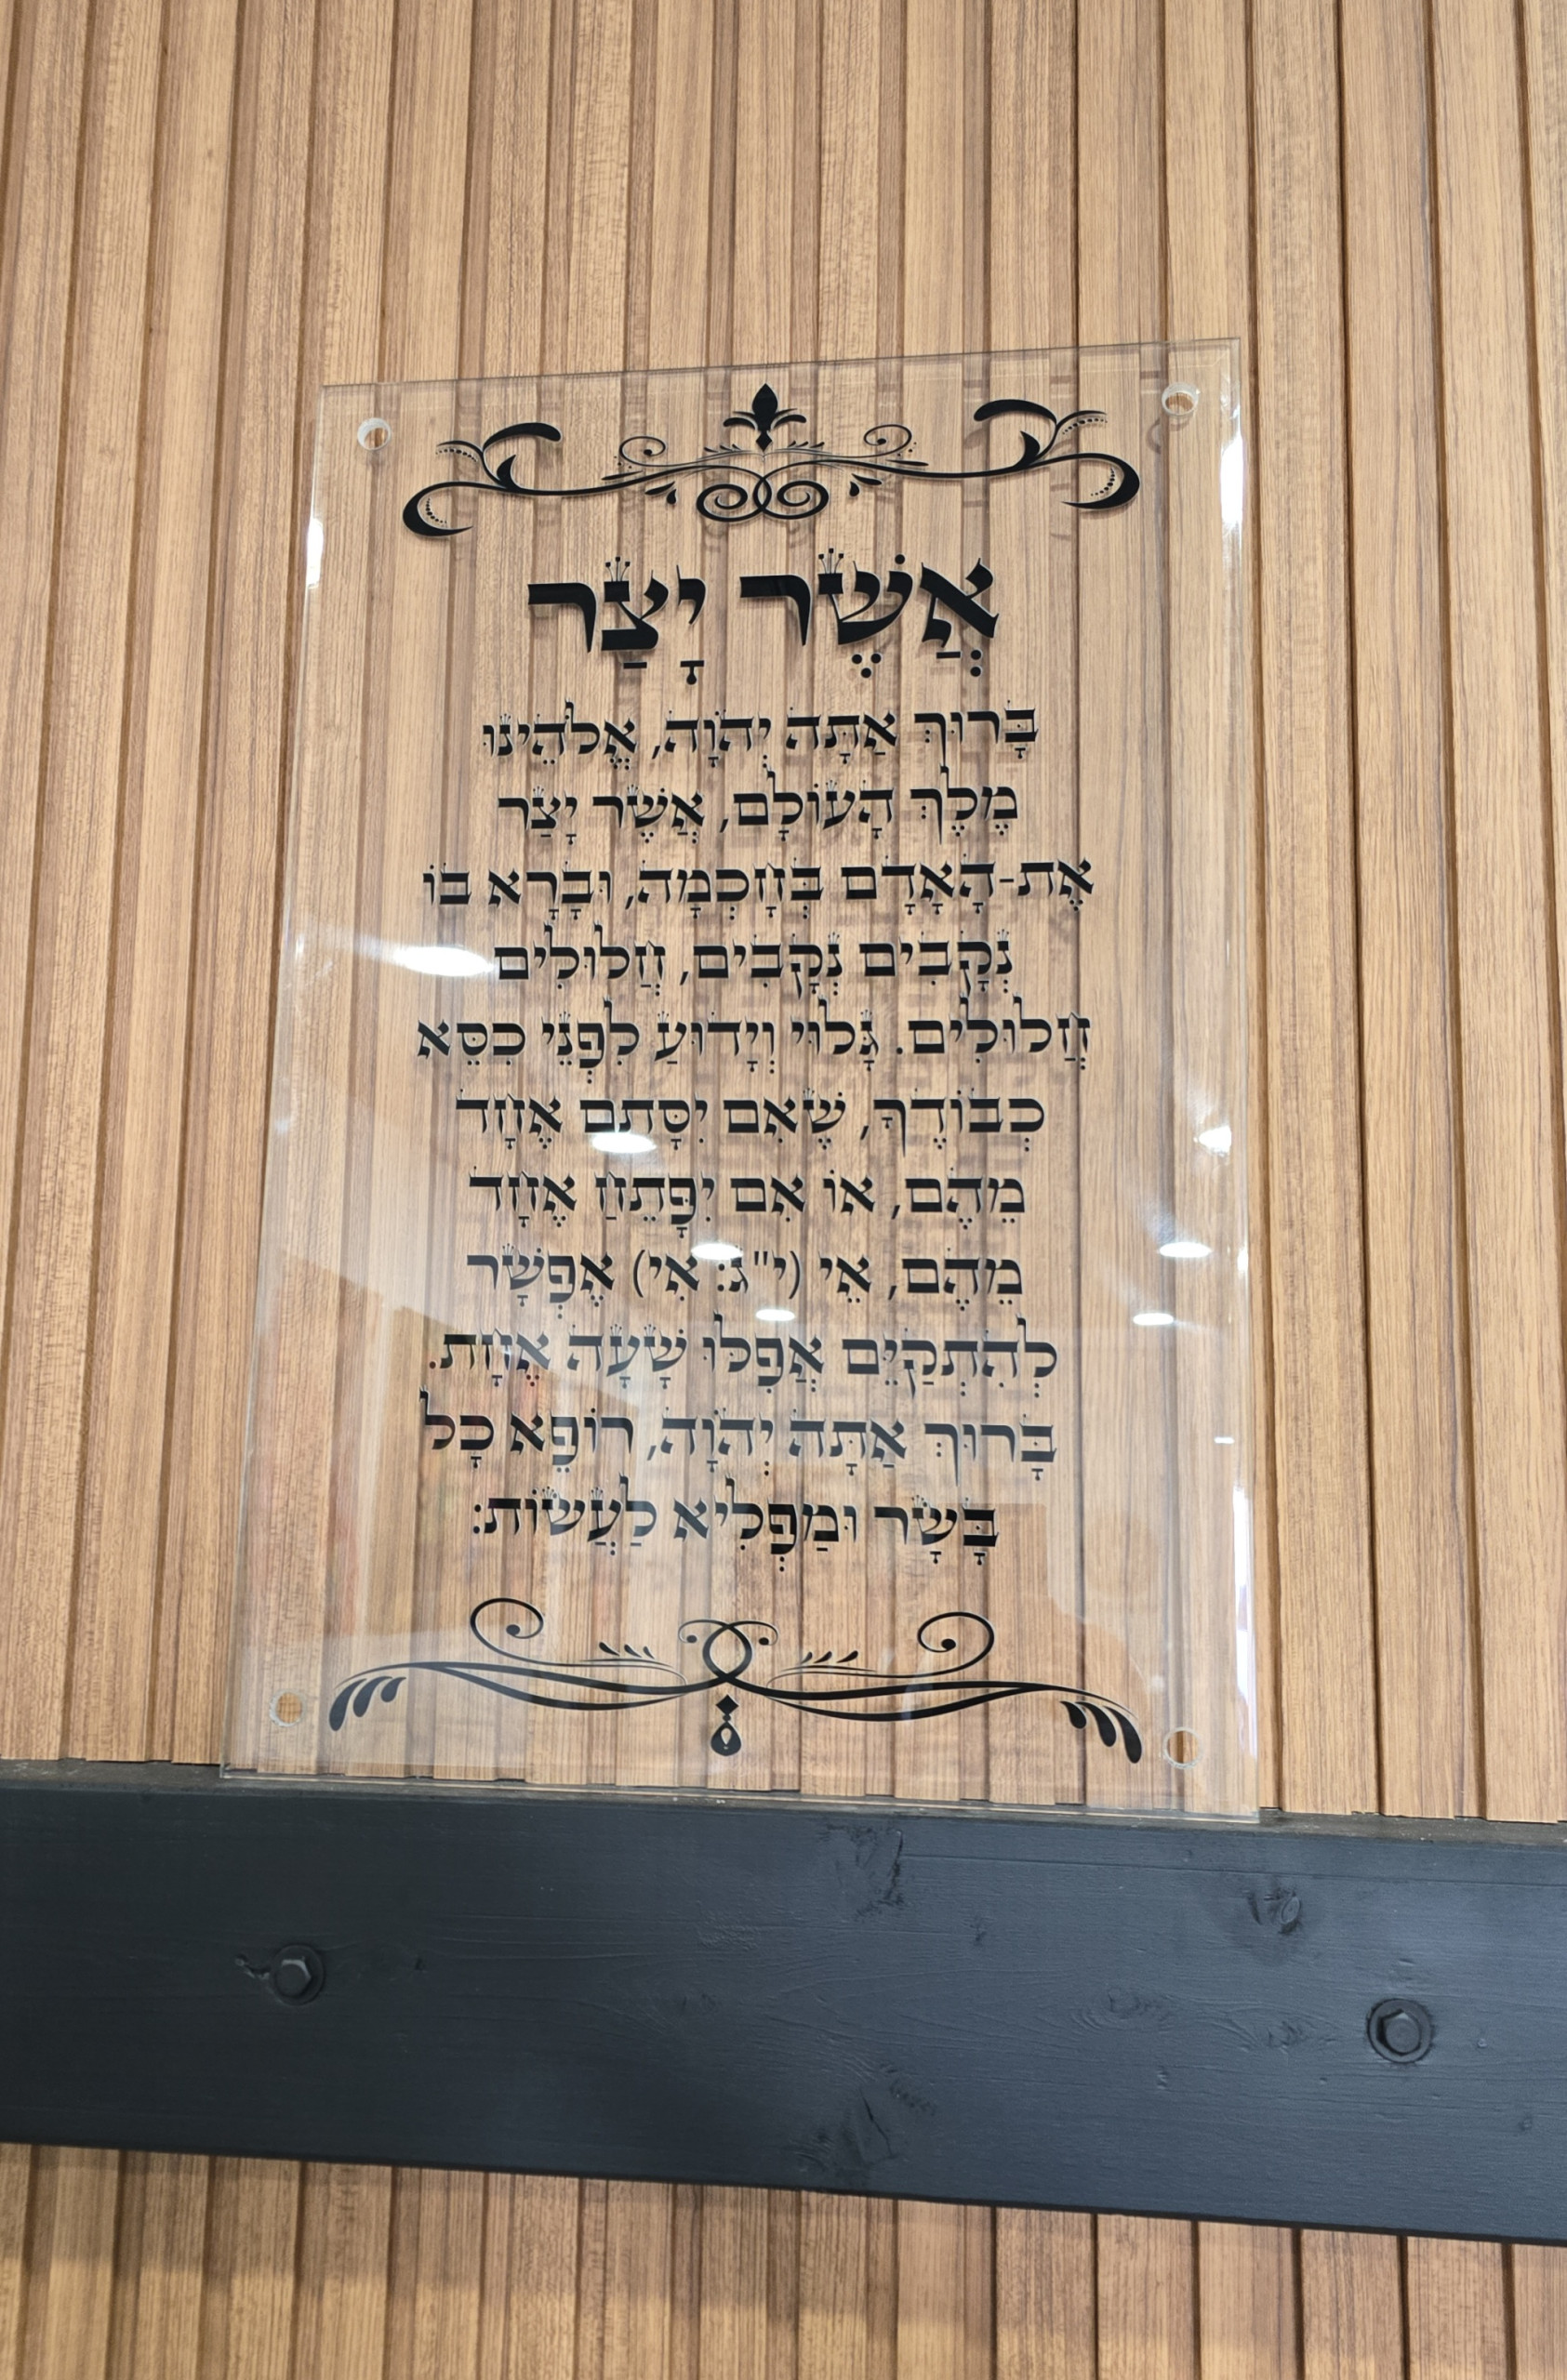 אֲשֶׁר יָצַר
בָּרוּךְ אַתָּה יְהֹוָה, אֱלֹהֵינוּ
מֶלֶךְ הָעוֹלָם, אֲשֶׁר יָצַר
אֶת-הָאָדָם בְּחָכְמָה, וּבָרָא בוֹ
נְקָבִים נְקָבִים, חֲלוּלִים
חֲלוּלִים. גָּלוּי וְיָדוּעַ לִפְנֵי כִסֵּא
כְבוֹדֶךָ, שֶׁאִם יִסָּתֵם אֶחָד
מֵהֶם, אוֹ אִם יִפָּתֵחַ אֶחָד
מֵהֶם, אֵי (י"ג: אִי) אֶפְשָׁר
לְהִתְקַיֵּם אֲפִלּוּ שָׁעָה אֶחָת.
בָּרוּךְ אַתָּה יְהֹוָה, רוֹפֵא כָל
בָּשָׂר וּמַפְלִיא לַעֲשׂוֹת: